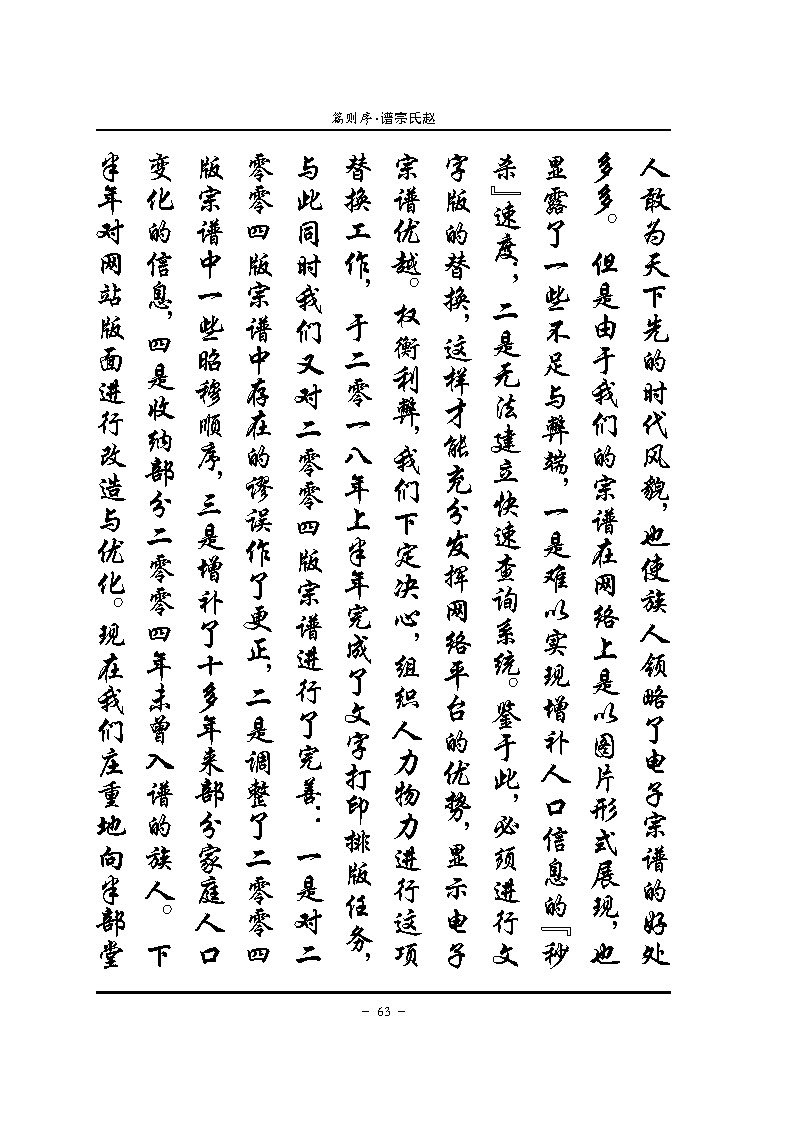 赵氏宗谱·序则篇
人敢为天下先的时代风貌，也使族人领略了电子宗谱的好处
多多。但是由于我们的宗谱在网络上是以图片形式展现，也
显露了一些不足与弊端，一是难以实现增补人口信息的『秒
杀』速度，二是无法建立快速查询系统。鉴于此，必须进行文
字版的替换，这样才能充分发挥网络平台的优势，显示电子
宗谱优越。权衡利弊，我们下定决心，组织人力物力进行这项
替换工作，于二零一八年上半年完成了文字打印排版任务，
与此同时我们又对二零零四版宗谱进行了完善：一是对二
零零四版宗谱中存在的谬误作了更正，二是调整了二零零四
版宗谱中一些昭穆顺序，三是增补了十多年来部分家庭人口
变化的信息，四是收纳部分二零零四年未曾入谱的族人。下
半年对网站版面进行改造与优化。现在我们庄重地向半部堂
- 63 -